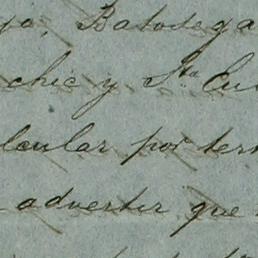 Batosega
chic y Sta Eu
lcular por ter
advertir que